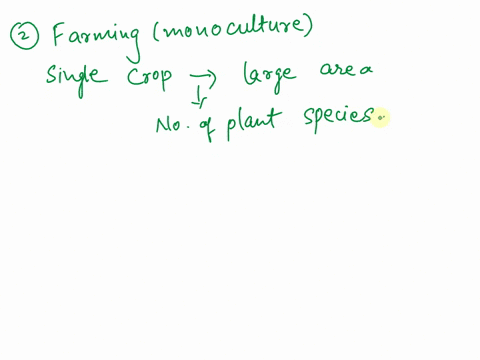 ② Farming (monoculture)
Single crop → large area
↓
No. of plant species.